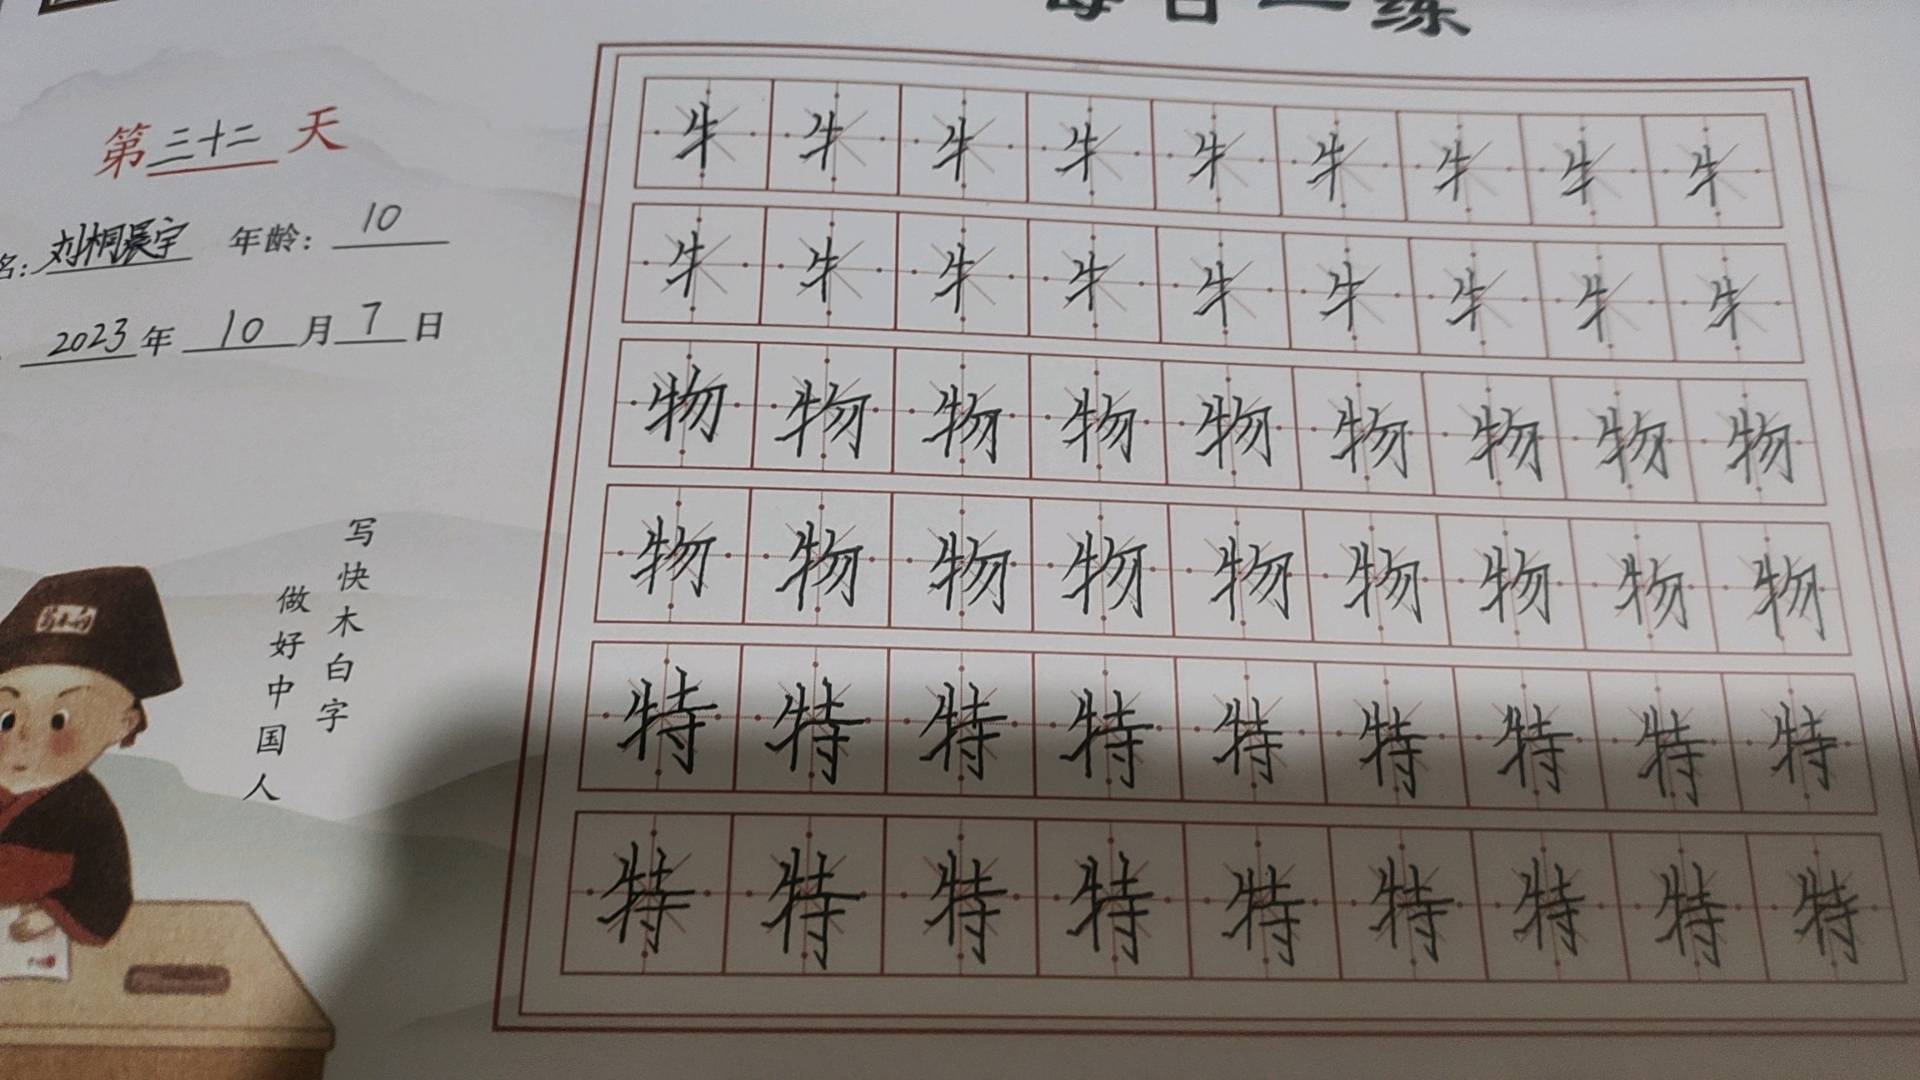 每日一练
第三十二天
名:刘桐晨宇 年龄:10
2023年10月7日
写快木白字
做好中国人
牛牛牛牛牛牛牛牛牛
牛牛牛牛牛牛牛牛牛
物物物物物物物物物
物物物物物物物物物
特特特特特特特特特
特特特特特特特特特